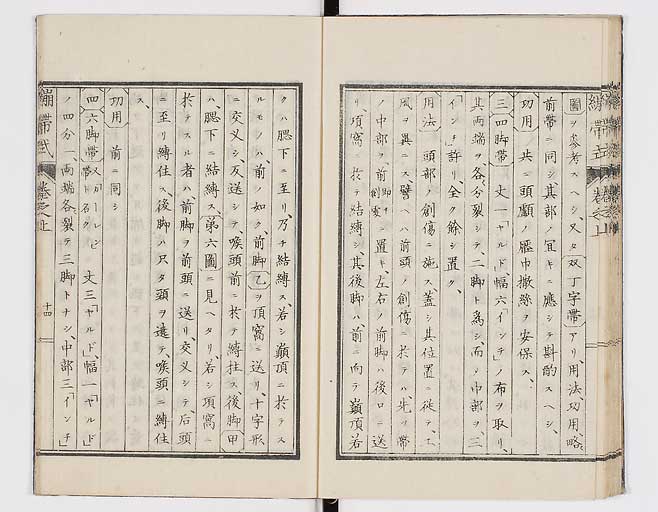 圖ヲ參考スヘシ、又タ双丁字帶アリ、用法、功用略
前帶ニ同シ其部ノ冝キニ應シテ斟酌スヘシ、
功用 共ニ頭顱ノ壓巾撒絲ヲ安保ス、
三 四脚帶 丈一「ヤルド」幅六「インチ」ノ布ヲ取リ、
其両端ヲ各分裂シテ、二脚ト爲シ、而ノ中部ヲ三
「インチ」許リ全ク餘シ置ク、
用法 頭部ノ創傷ニ施ス、蓋シ其位置ニ從テ、工
風ヲ異ニス、譬ヘハ前頭ノ創傷ニ於テハ、先ツ帶
ノ中部ヲ、前額即チ創處ニ置キ、左右ノ前脚ハ後ロニ送
リ、項窩ニ於テ結縛シ、其後脚ハ、前ニ向テ巓頂若
クハ腮下ニ至リ、乃チ結縛ス、若シ巓頂ニ於テス
ルモノハ、前ノ如ク、前脚乙ヲ頂窩ニ送リ十字形
ニ交叉シ、反送シテ、喉頭前ニ於テ縛住ス、後脚甲
ハ、腮下ニ結縛ス、第六圖ニ見ヘタリ、若シ項窩ニ
於テスル者ハ前脚ヲ前頭ニ送リ、交叉シテ、后頭
ニ至リ縛住ス、後脚ハ只タ頭ヲ遶テ、喉頭ニ縛住
ス、
功用 前ニ同シ
四 六脚帶 又ガーレン帶ト名ク 丈三「ヤルド」、幅一「ヤルド」
ノ四分一、両端各裂テ三脚トナシ、中部三「インチ」
繃帶式 卷之上
十四